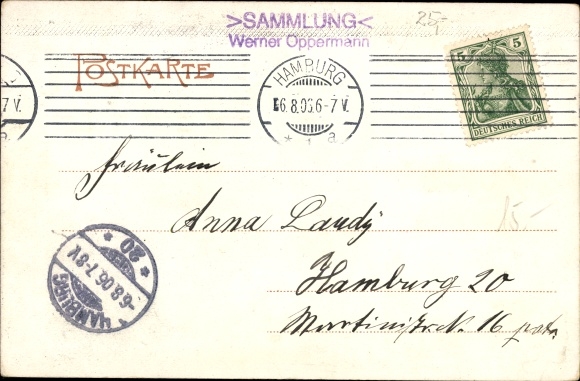 >SAMMLUNG<
Werner Oppermann
25.-
POSTKARTE
HAMBURG
6.8.06.6-7V.
* 1 a
7V.
5 5
DEUTSCHES REICH
Fräulein
Anna Landÿ
15.-
Hamburg 20
Martinistr. 16 part.
HAMBURG
-6.8.06.7-8V.
* 20 *